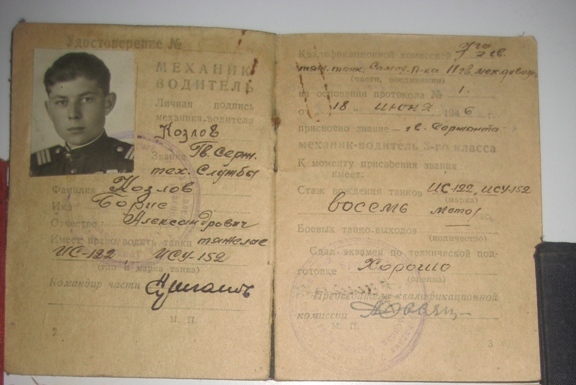 Удостоверение №
МЕХАНИК
ВОДИТЕЛЬ
Личная подпись
механика-водителя
Козлов
Звание Гв. Серж.
тех. Службы
Фамилия Козлов
Имя Борис
Отчество Александрович
Имеет право водить танки тяжелые
ИС-122, ИСУ-152
(тип и марка танка)
Командир части
М. П.
2
Квалификационной комиссией
(части, соединения)
на основании протокола № 1.
от 18 июня 194 6
присвоено звание - гв. Сержанта
механик-водитель 3-го класса
К моменту присвоения звания
имеет:
Стаж вождения танков ИС-122, ИСУ-152
(марка)
восемь мото/
Боевых танко-выходов —
(количество)
Сдал экзамен по технической под-
готовке Хорошо
(оценка)
Председатель квалификационной
комиссии
М. П.
3